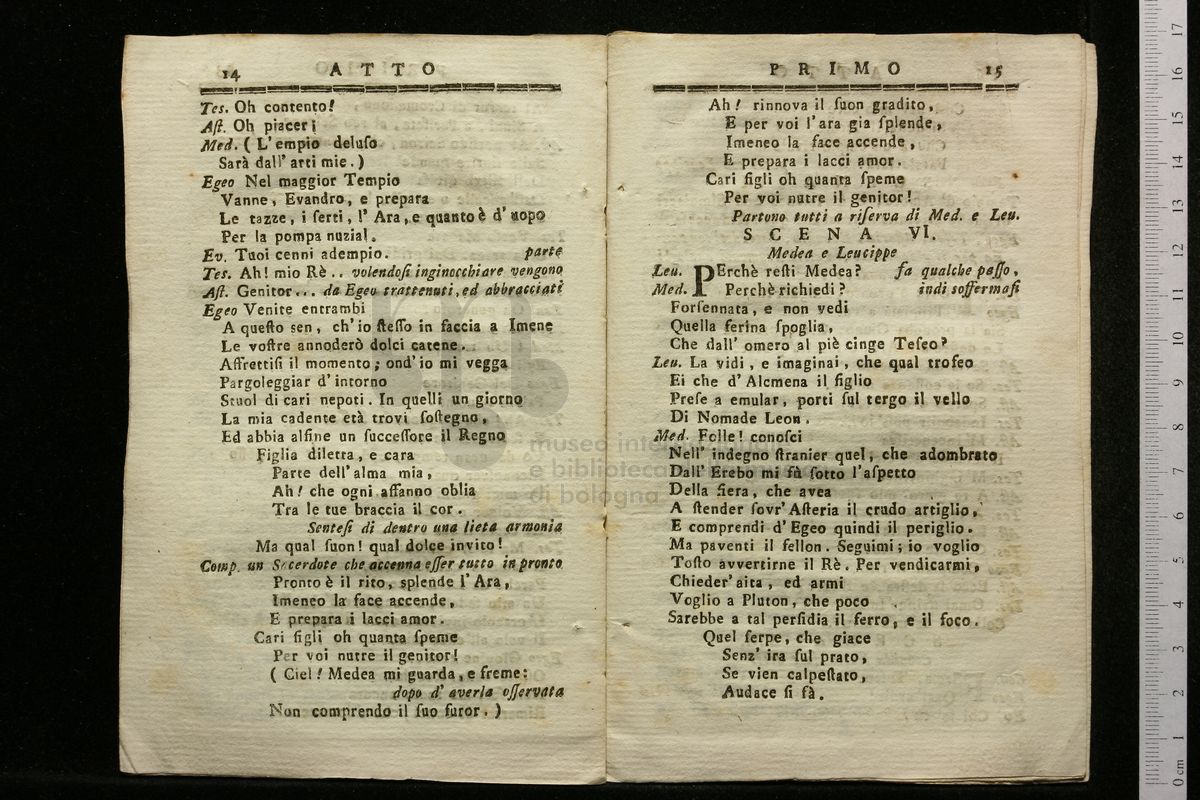 14 ATTO
Tes. Oh contento!
Aſt. Oh piacer!
Med. ( L' empio deluſo
Sarà dall' arti mie. )
Egeo Nel maggior Tempio
Vanne, Evandro, e prepara
Le tazze, i ſerti, l' Ara, e quanto è d' uopo
Per la pompa nuzial.
Ev. Tuoi cenni adempio. parte
Tes. Ah! mio Rè .. volendoſi inginocchiare vengono
Aſt. Genitor... da Egeo trattenuti, ed abbracciati
Egeo Venite entrambi
A queſto sen, ch' io ſteſſo in faccia a Imene
Le voſtre annoderò dolci catene.
Affrettiſi il momento; ond' io mi vegga
Pargoleggiar d' intorno
Stuol di cari nepoti. In quelli un giorno
La mia cadente età trovi ſoſtegno,
Ed abbia alfine un ſucceſſore il Regno
Figlia diletta, e cara
Parte dell' alma mia,
Ah! che ogni affanno oblia
Tra le tue braccia il cor.
Senteſi di dentro una lieta armonia
Ma qual ſuon! qual dolce invito!
Comp. un Sacerdote che accenna eſſer tutto in pronto
Pronto è il rito, splende l' Ara,
Imeneo la face accende,
E prepara i lacci amor.
Cari figli oh quanta ſpeme
Per voi nutre il genitor!
( Ciel! Medea mi guarda, e freme:
dopo d' averla oſſervata
Non comprendo il ſuo furor. )
PRIMO 15
Ah! rinnova il ſuon gradito,
E per voi l' ara gia ſplende,
Imeneo la face accende,
E prepara i lacci amor.
Cari figli oh quanta ſpeme
Per voi nutre il genitor!
Partono tutti a riſerva di Med. e Leu.
SCENA VI.
Medea e Leucippe
Leu. PErchè reſti Medea? fa qualche paſſo,
Med. Perchè richiedi? indi soffermaſi
Forſennata, e non vedi
Quella ferina ſpoglia,
Che dall' omero al piè cinge Teſeo?
Leu. La vidi, e imaginai, che qual trofeo
Ei che d' Alcmena il figlio
Preſe a emular, porti ſul tergo il vello
Di Nomade Leon.
Med. Folle! conoſci
Nell' indegno ſtranier quel, che adombrato
Dall' Erebo mi fù ſotto l' aſpetto
Della fiera, che avea
A ſtender ſovr' Aſteria il crudo artiglio,
E comprendi d' Egeo quindi il periglio.
Ma paventi il fellon. Seguimi; io voglio
Toſto avvertirne il Rè. Per vendicarmi,
Chieder' aita, ed armi
Voglio a Pluton, che poco
Sarebbe a tal perfidia il ferro, e il foco.
Quel ſerpe, che giace
Senz' ira ſul prato,
Se vien calpeſtato,
Audace ſi fà.
museo internazionale
e biblioteca
di bologna